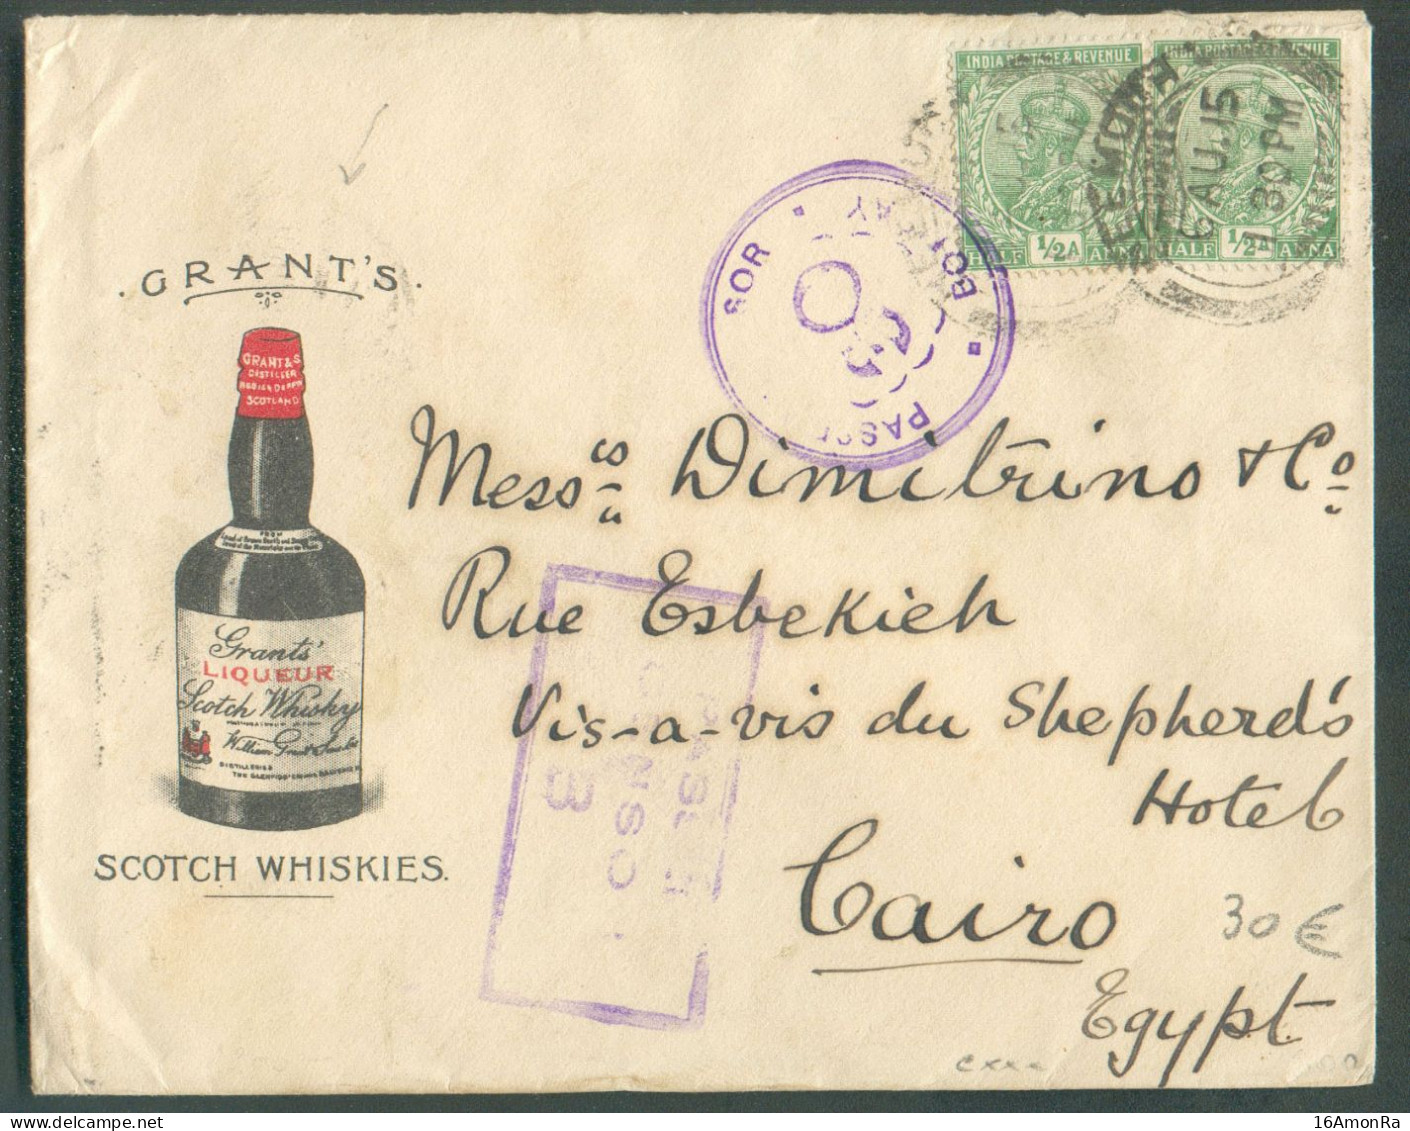 INDIA POSTAGE & REVENUE
INDIA POSTAGE & REVENUE
HALF ½A ANNA
HALF ½A ANNA
6 AU. 15
1 30 PM
GRANT'S
GRANT & S
DISTILLER
SCOTLAND
FROM
Grants'
LIQUEUR
Scotch Whisky
William Grant & Sons Ltd
DISTILLERIES
SCOTCH WHISKIES.
BOMBAY
PASSED
CENSOR
3
Messrs Dimitrino & Co
Rue Esbekieh
Vis-a-vis du Shepherd's
Hotel
Cairo
Egypt
30 €
16AmonRa